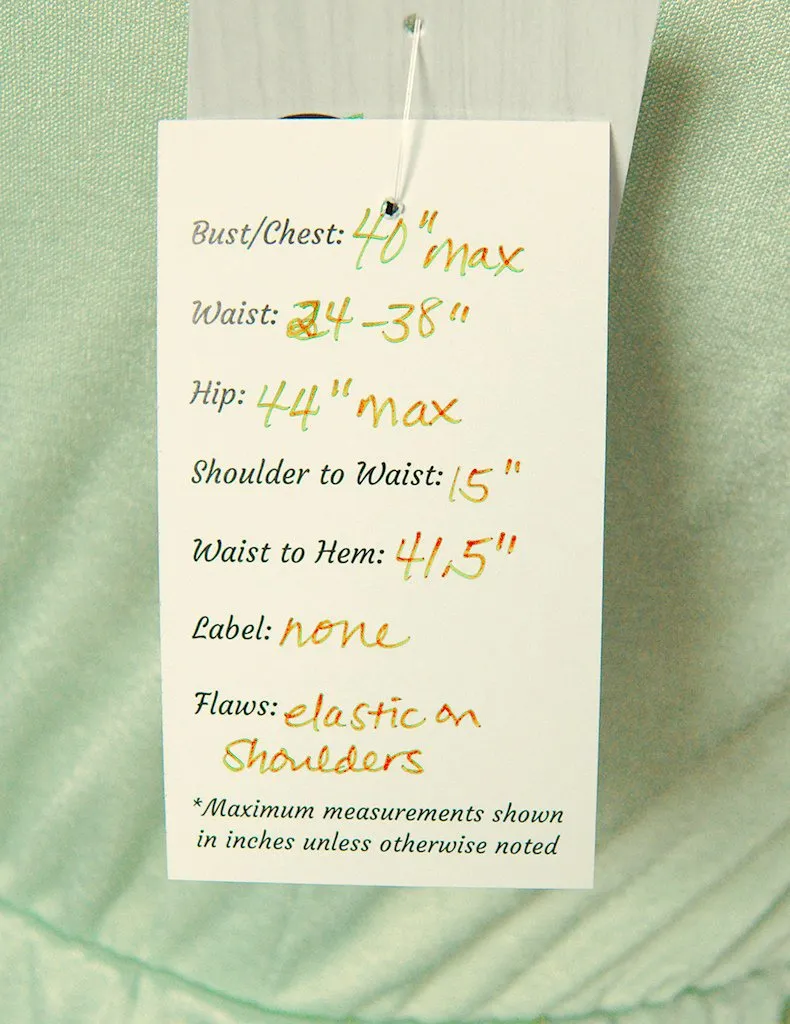 Bust/Chest: 40" max
Waist: 24-38"
Hip: 44" max
Shoulder to Waist: 15"
Waist to Hem: 41.5"
Label: none
Flaws: elastic on
Shoulders
*Maximum measurements shown
in inches unless otherwise noted